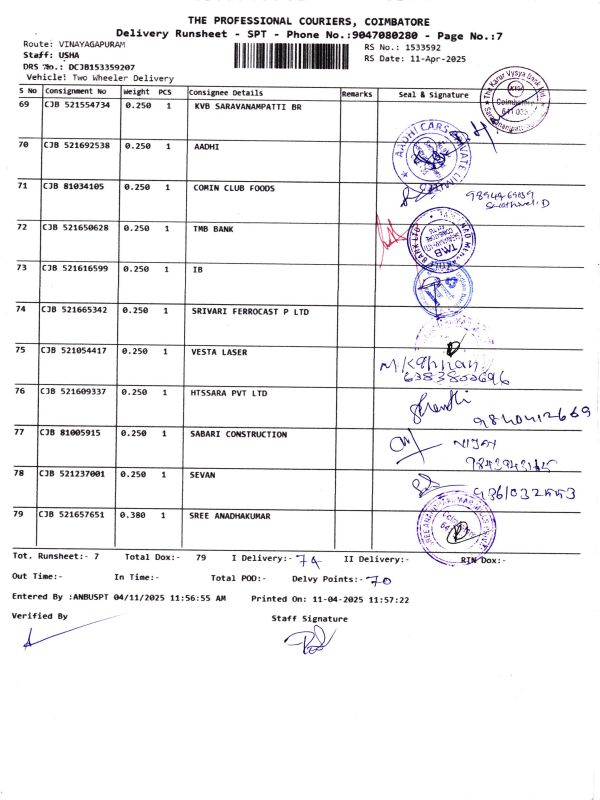 THE PROFESSIONAL COURIERS, COIMBATORE
Delivery Runsheet - SPT - Phone No.:9047080280 - Page No.:7
Route: VINAYAGAPURAM
RS No.: 1533592
Staff: USHA
RS Date: 11-Apr-2025
DRS No.: DCJB153359207
Vehicle: Two Wheeler Delivery
S No Consignment No Weight PCS Consignee Details Remarks Seal & Signature
69 CJB 521554734 0.250 1 KVB SARAVANAMPATTI BR
The Karur Vysya Bank
Coimbatore
641 035
70 CJB 521692538 0.250 1 AADHI
AADHI CARS PRIVATE LIMITED
71 CJB 81034105 0.250 1 COMIN CLUB FOODS
72 CJB 521650628 0.250 1 TMB BANK
TMB
73 CJB 521616599 0.250 1 IB
74 CJB 521665342 0.250 1 SRIVARI FERROCAST P LTD
75 CJB 521054417 0.250 1 VESTA LASER
6383800696
76 CJB 521609337 0.250 1 HTSSARA PVT LTD
9840412669
77 CJB 81005915 0.250 1 SABARI CONSTRUCTION
78 CJB 521237001 0.250 1 SEVAN
79 CJB 521657651 0.380 1 SREE ANADHAKUMAR
Tot. Runsheet:- 7 Total Dox:- 79 I Delivery:- 74 II Delivery:- RTN Dox:-
Out Time:- In Time:- Total POD:- Delvy Points:- 70
Entered By :ANBUSPT 04/11/2025 11:56:55 AM Printed On: 11-04-2025 11:57:22
Verified By
Staff Signature